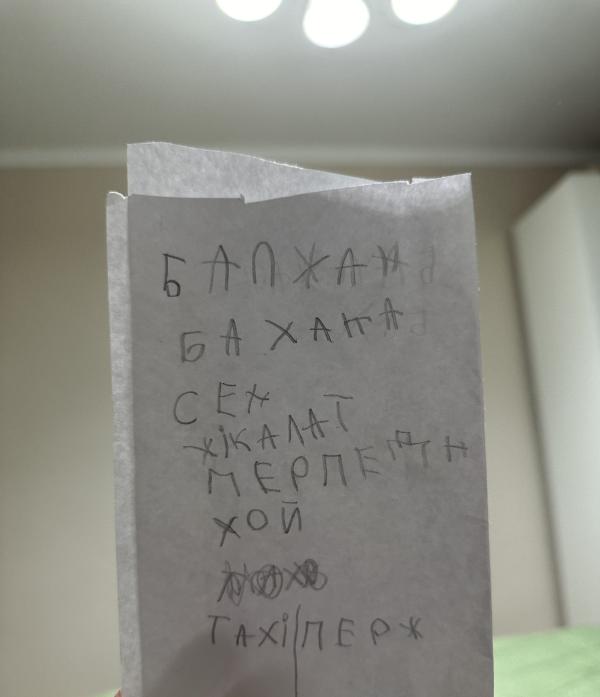 БАПЖАН
БАХАНА
СЕН
ХІКАЛАТ
МЕРПЕТН
ХОЙ
ТАХІ|ПЕРЖ